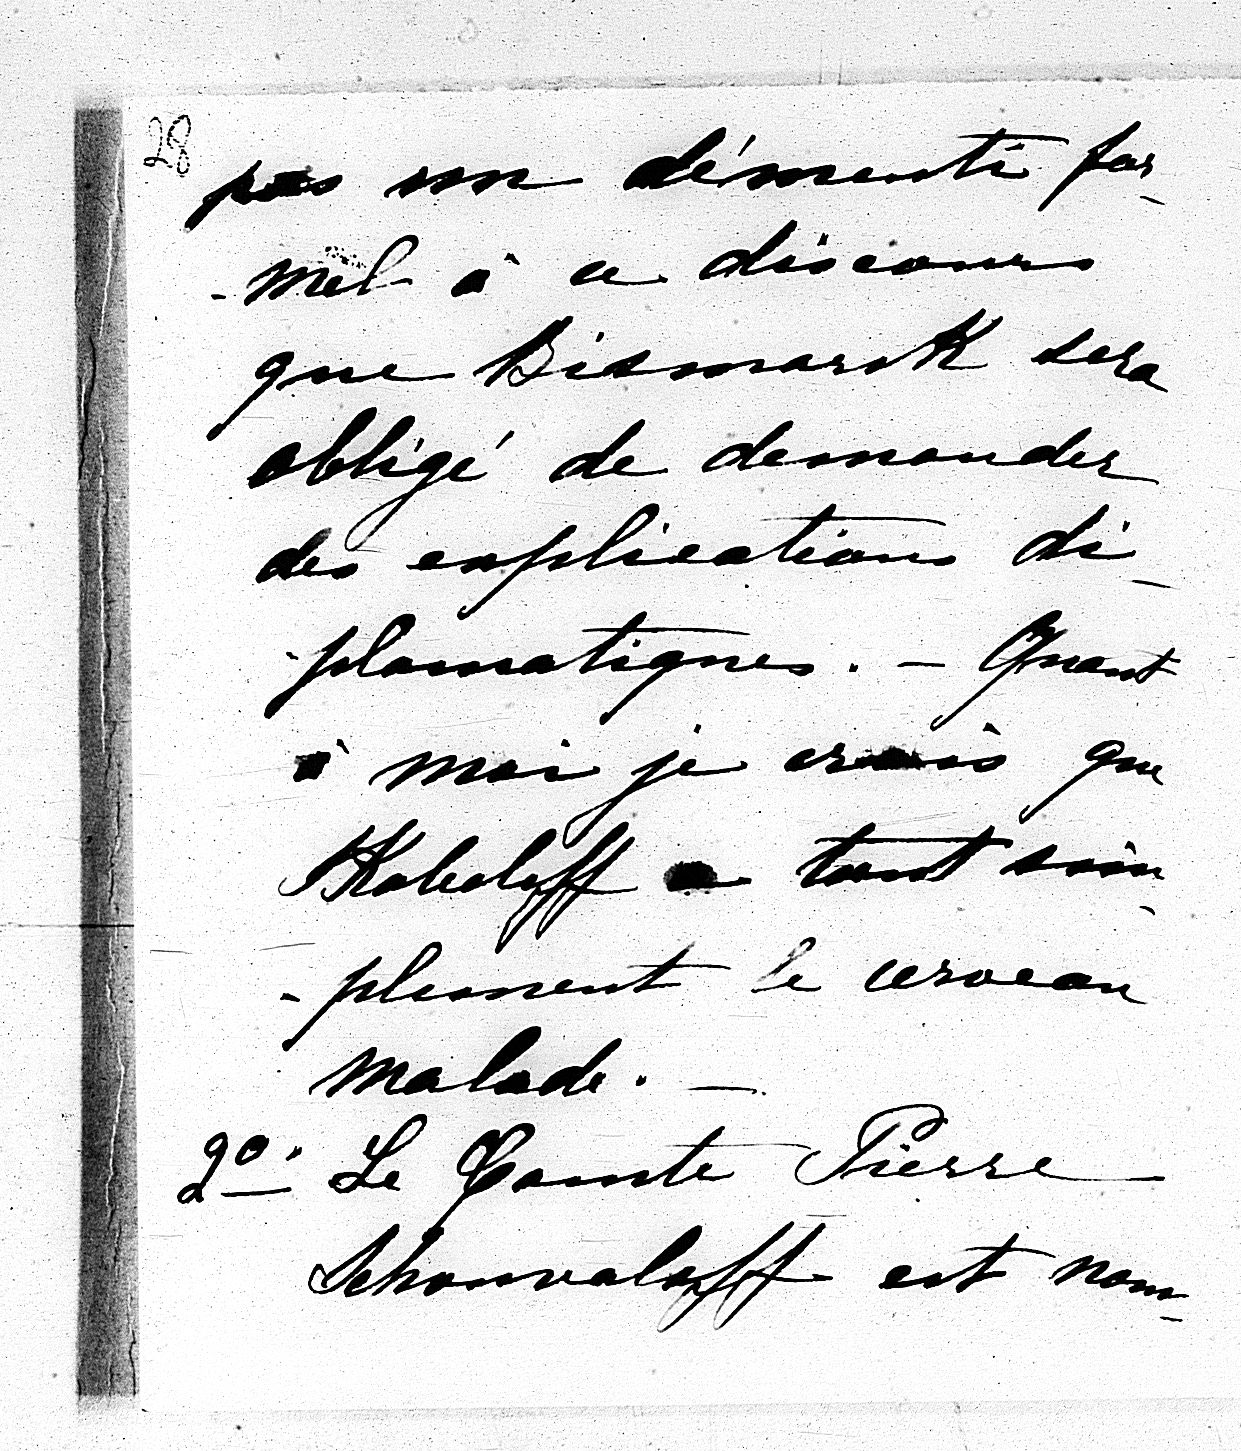 28
pas un démenti for-
-mel à ce discours
que Bismarck sera
obligé de demander
des explications di-
-plomatiques. — Quant
à moi je crois que
Skobeleff a tout sim-
-plement le cerveau
malade. —
2º. Le Comte Pierre
Schouvaloff est nom-